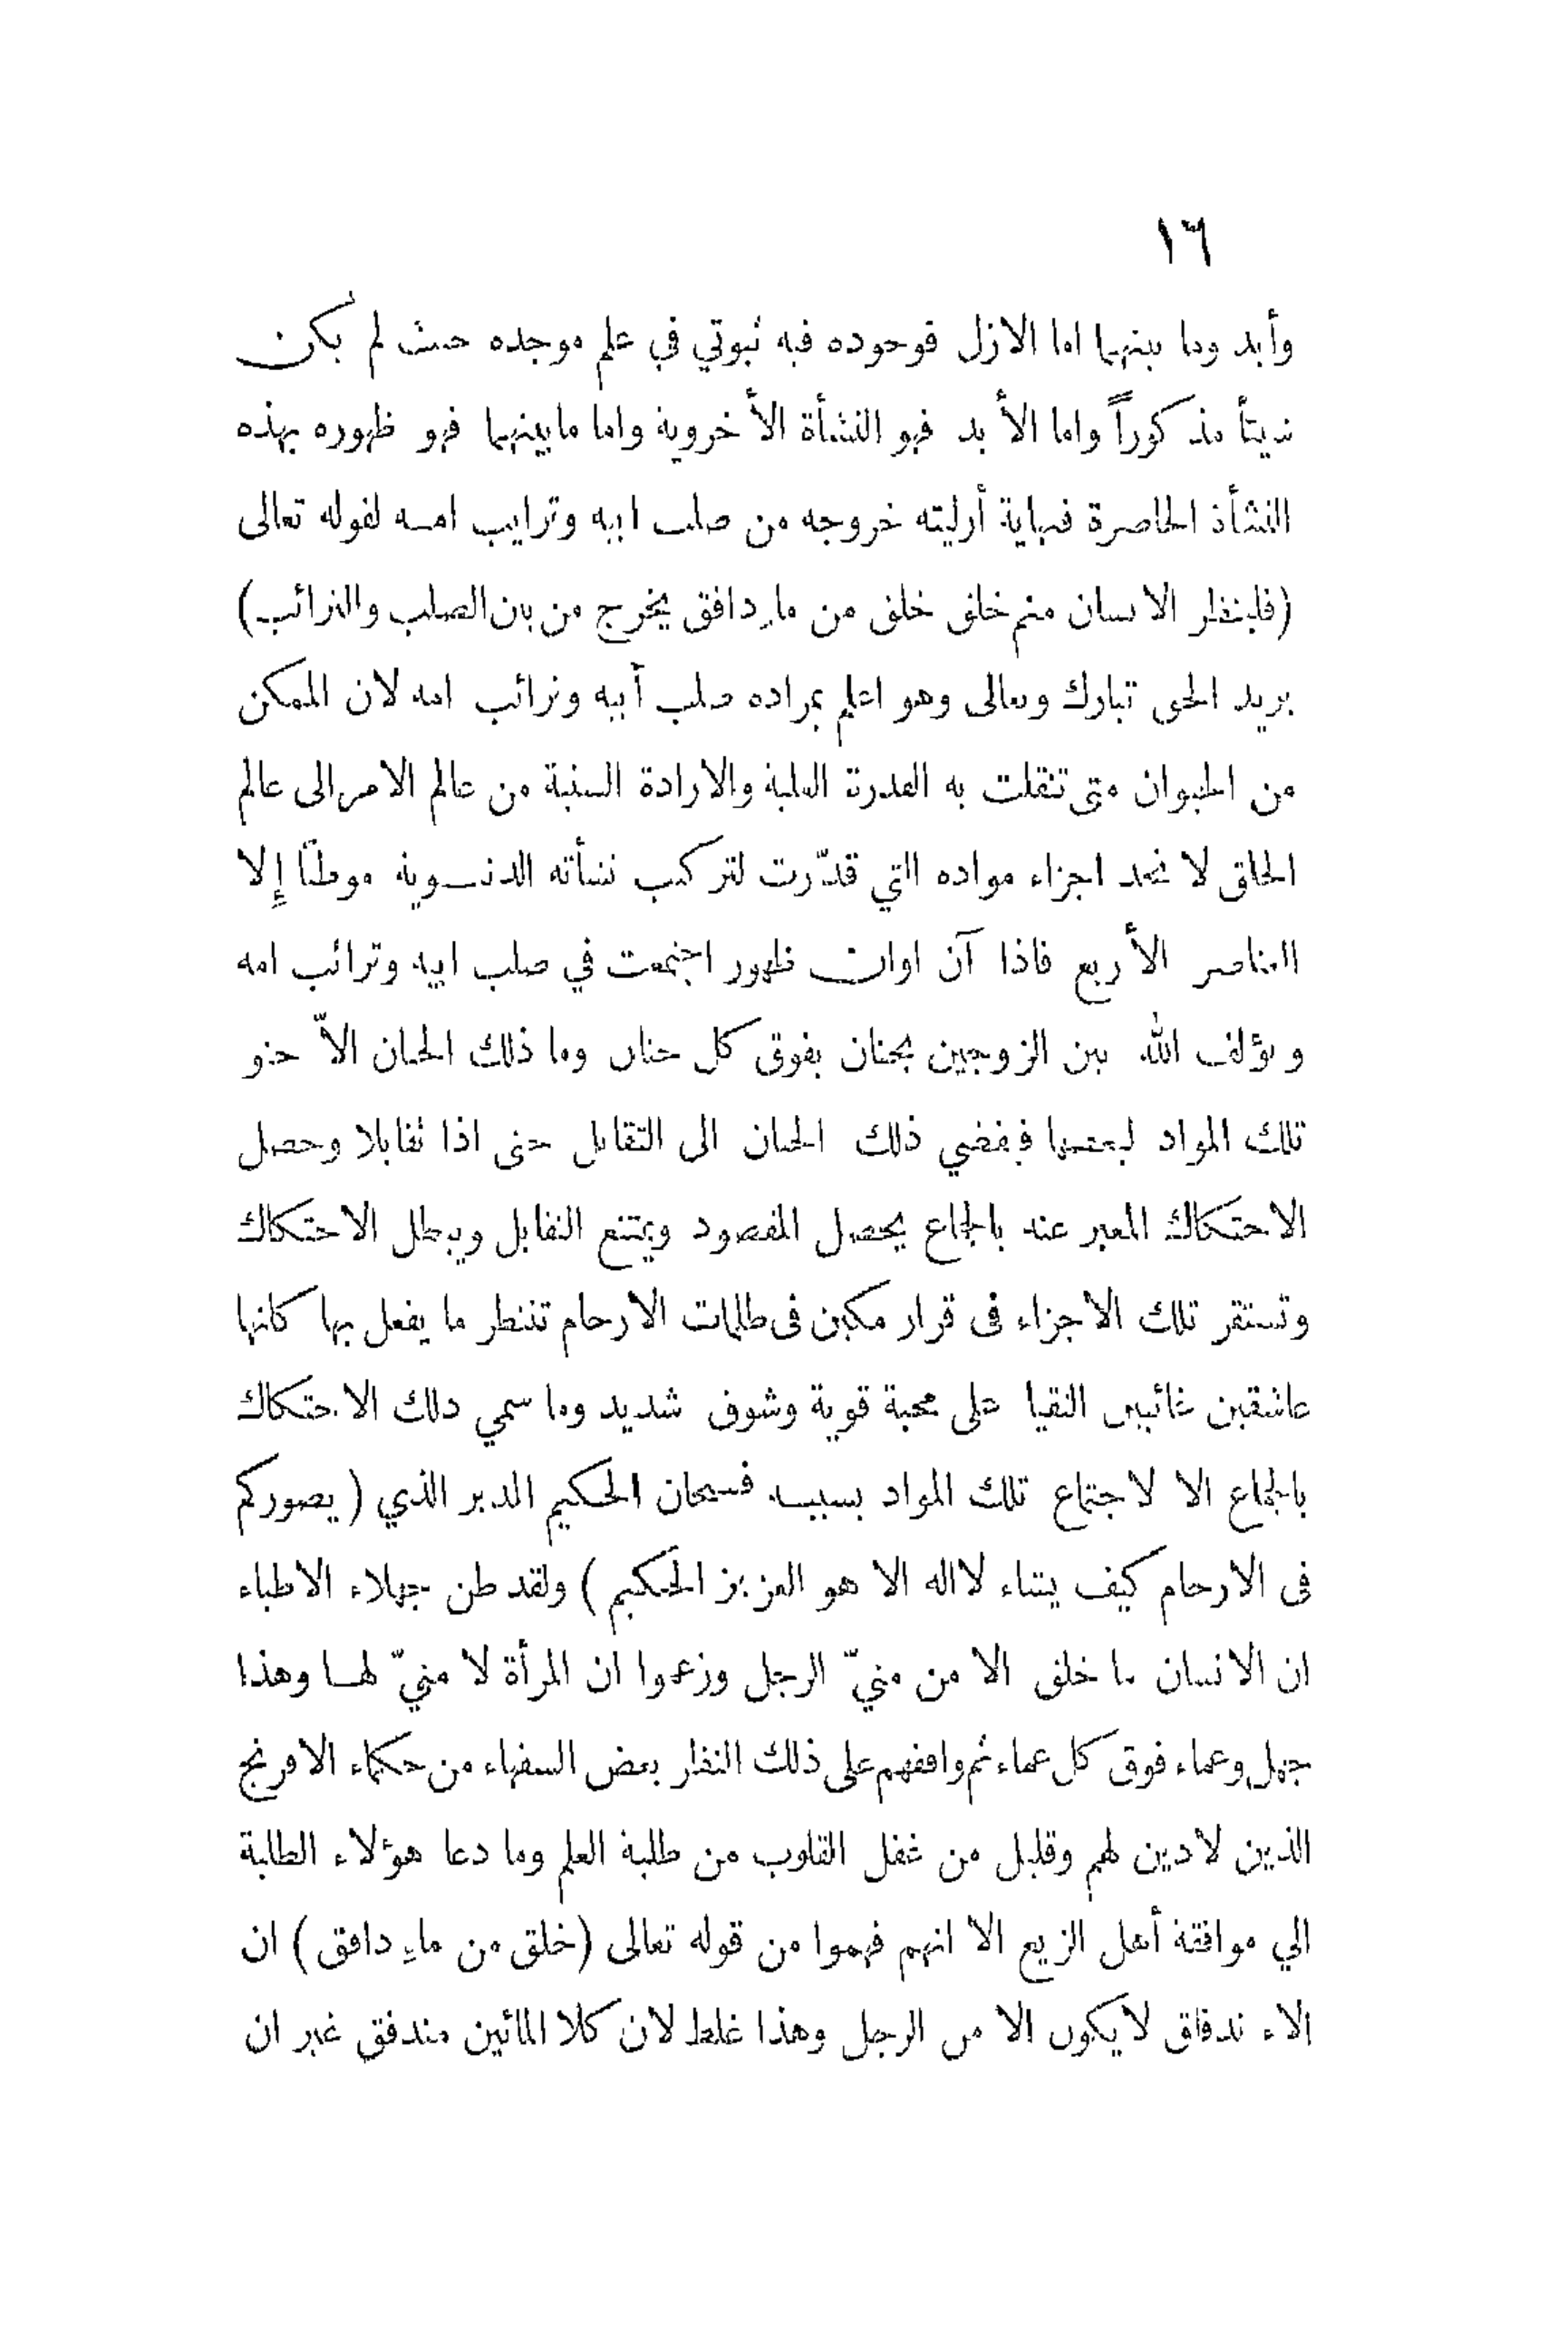 ١٦
وأبد وما بينهما اما الازل فوجوده فيه ثبوتي في علم موجده حيث لم يكن
شيئاً مذكوراً واما الأبد فهو النشأة الأخروية واما مابينهما فهو ظهوره بهذه
النشأة الحاضرة فنهاية أزليته خروجه من صلب ابيه وترايب امـه لقوله تعالى
(فلينظر الانسان مم خلق خلق من ماء دافق يخرج من بين الصلب والترائب)
يريد الحق تبارك وتعالى وهو اعلم بمراده صلب أبيه وترائب امه لان الممكن
من الحيوان متى تنقلت به القدرة العلية والارادة السنية من عالم الامر الى عالم
الخلق لا تجد اجزاء مواده التي قدّرت لتركيب نشأته الدنيـوية موطئاً إلا
العناصر الأربع فاذا آن اوان ظهور اجتمعت في صلب ابيه وترائب امه
ويؤلف الله بين الزوجين بحنان يفوق كل حنان وما ذلك الحنان الاّ حنو
تلك المواد لبعضها فيفضي ذلك الحنان الى التقابل حتى اذا تقابلا وحصل
الاحتكاك المعبر عنه بالجماع يحصل المقصود ويمتنع التقابل ويبطل الاحتكاك
وتستقر تلك الاجزاء فى قرار مكين فى ظلمات الارحام تنتظر ما يفعل بها كانها
عاشقين غائبين التقيا على محبة قوية وشوق شديد وما سمي ذلك الاحتكاك
بالجماع الا لاجتماع تلك المواد بسببه فسبحان الحكيم المدبر الذي (يصوركم
فى الارحام كيف يشاء لااله الا هو العزيز الحكيم) ولقد ظن جهلاء الاطباء
ان الانسان ما خلق الا من منيّ الرجل وزعموا ان المرأة لا منيّ لهـا وهذا
جهل وعماء فوق كل عماء ثم وافقهم على ذلك النظر بعض السفهاء من حكماء الافرنج
الذين لادين لهم وقليل من غفل القلوب من طلبة العلم وما دعا هؤلاء الطلبة
الي موافقة أهل الزيغ الا انهم فهموا من قوله تعالى (خلق من ماء دافق) ان
الاندفاق لايكون الا من الرجل وهذا غلط لان كلا المائين مندفق غير ان